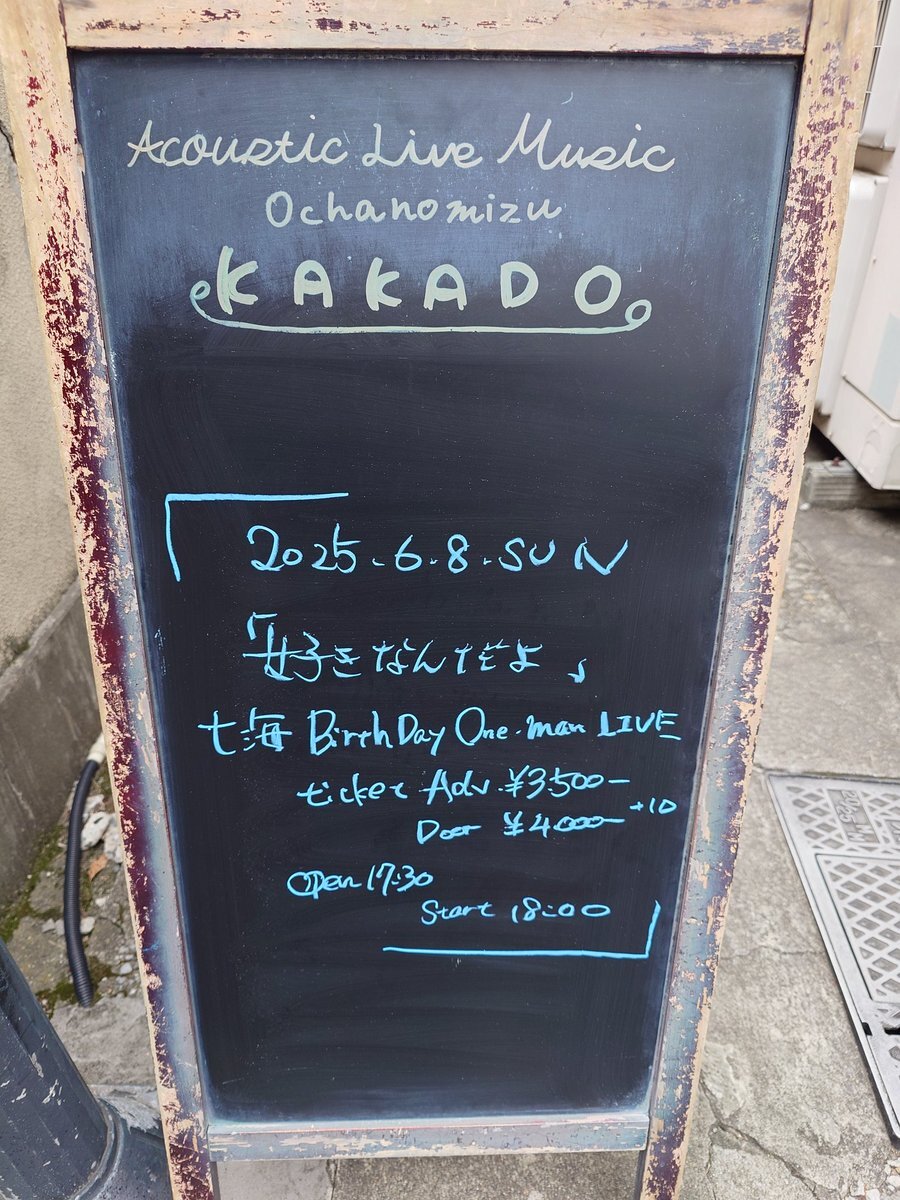 Acoustic Live Music
Ochanomizu
KAKADO
2025.6.8.SUN
「好きなんだよ」
七海 BirthDay One-man LIVE
ticket Adv.¥3500-
Door ¥4000- +1D
Open 17:30
Start 18:00